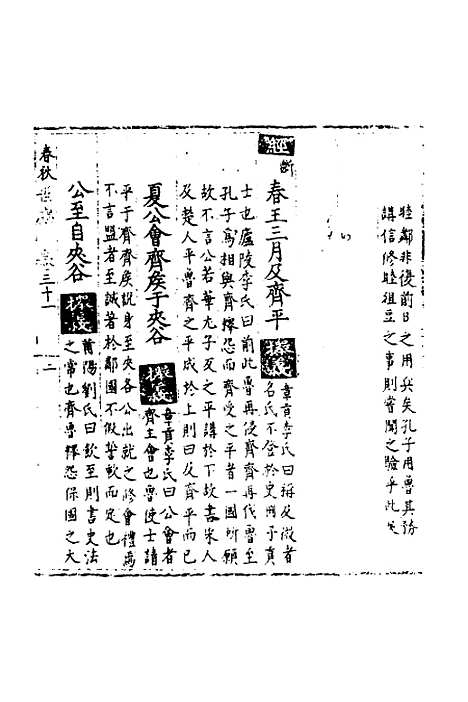 睦鄰非復前日之用兵矣孔子用魯其務
講信修睦俎豆之事則嘗聞之驗乎此矣
經斷
春王三月及齊平
擬義
章貢李氏曰稱及微者
名氏不登於史冊予貢
士也廬陵李氏曰前此魯再侵齊齊再伐魯至
孔子為相與齊釋怨而齊受之平者一國所願
故不言公若華元子反之平講於下故書宋人
及楚人平魯齊之平成於上則曰及齊平而已
夏公會齊侯于夾谷
擬義
章貢李氏曰公會者
齊主會也魯使士請
平于齊齊侯親身至夾谷公出就之修會禮焉
不言盟者至誠著於鄰國不假誓歃而定也
公至自夾谷
擬義
莆陽劉氏曰歃至則書史法
之常也齊魯釋怨保國之大
春秋
卷三十一
二